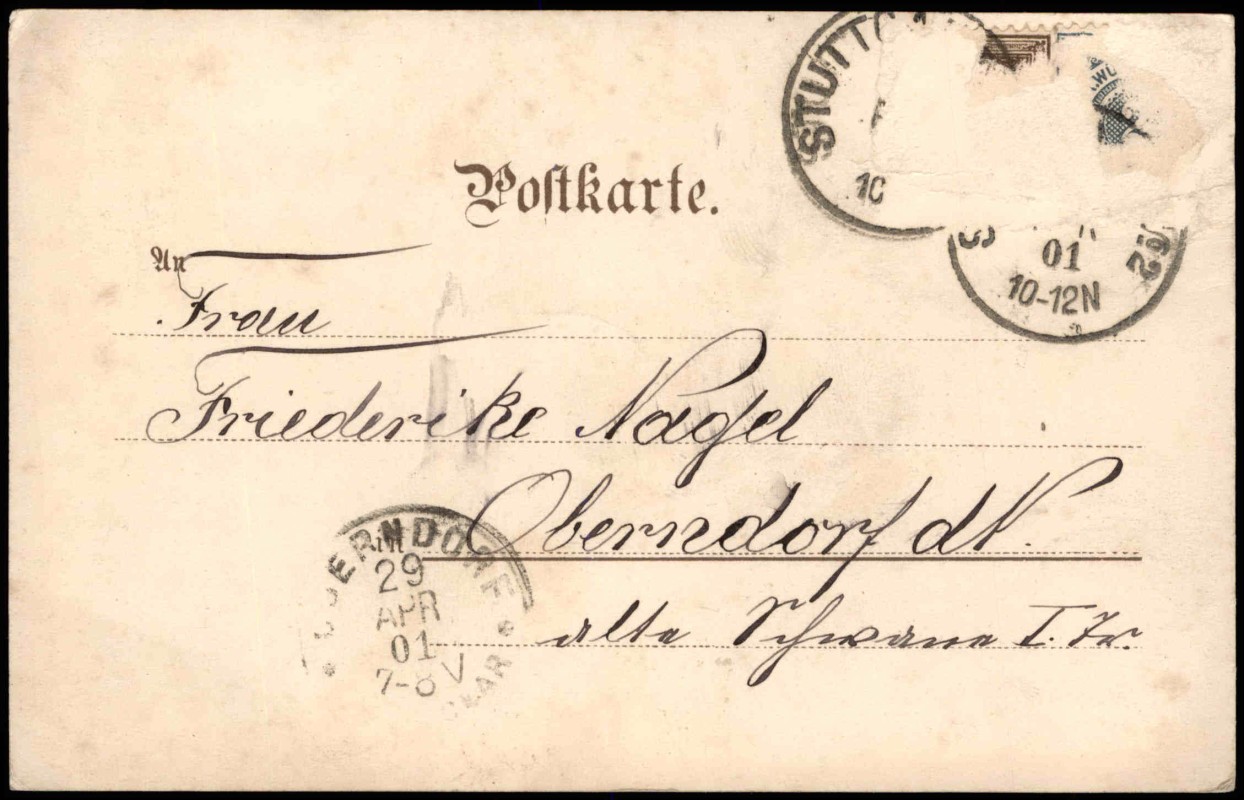 STUTTG
10
01
10-12N
Postkarte.
An
Frau
Friederike Nagel
in
Oberndorf a/N.
alte Schwane I. Tr.
OBERNDORF
29
APR
01
7-8 V